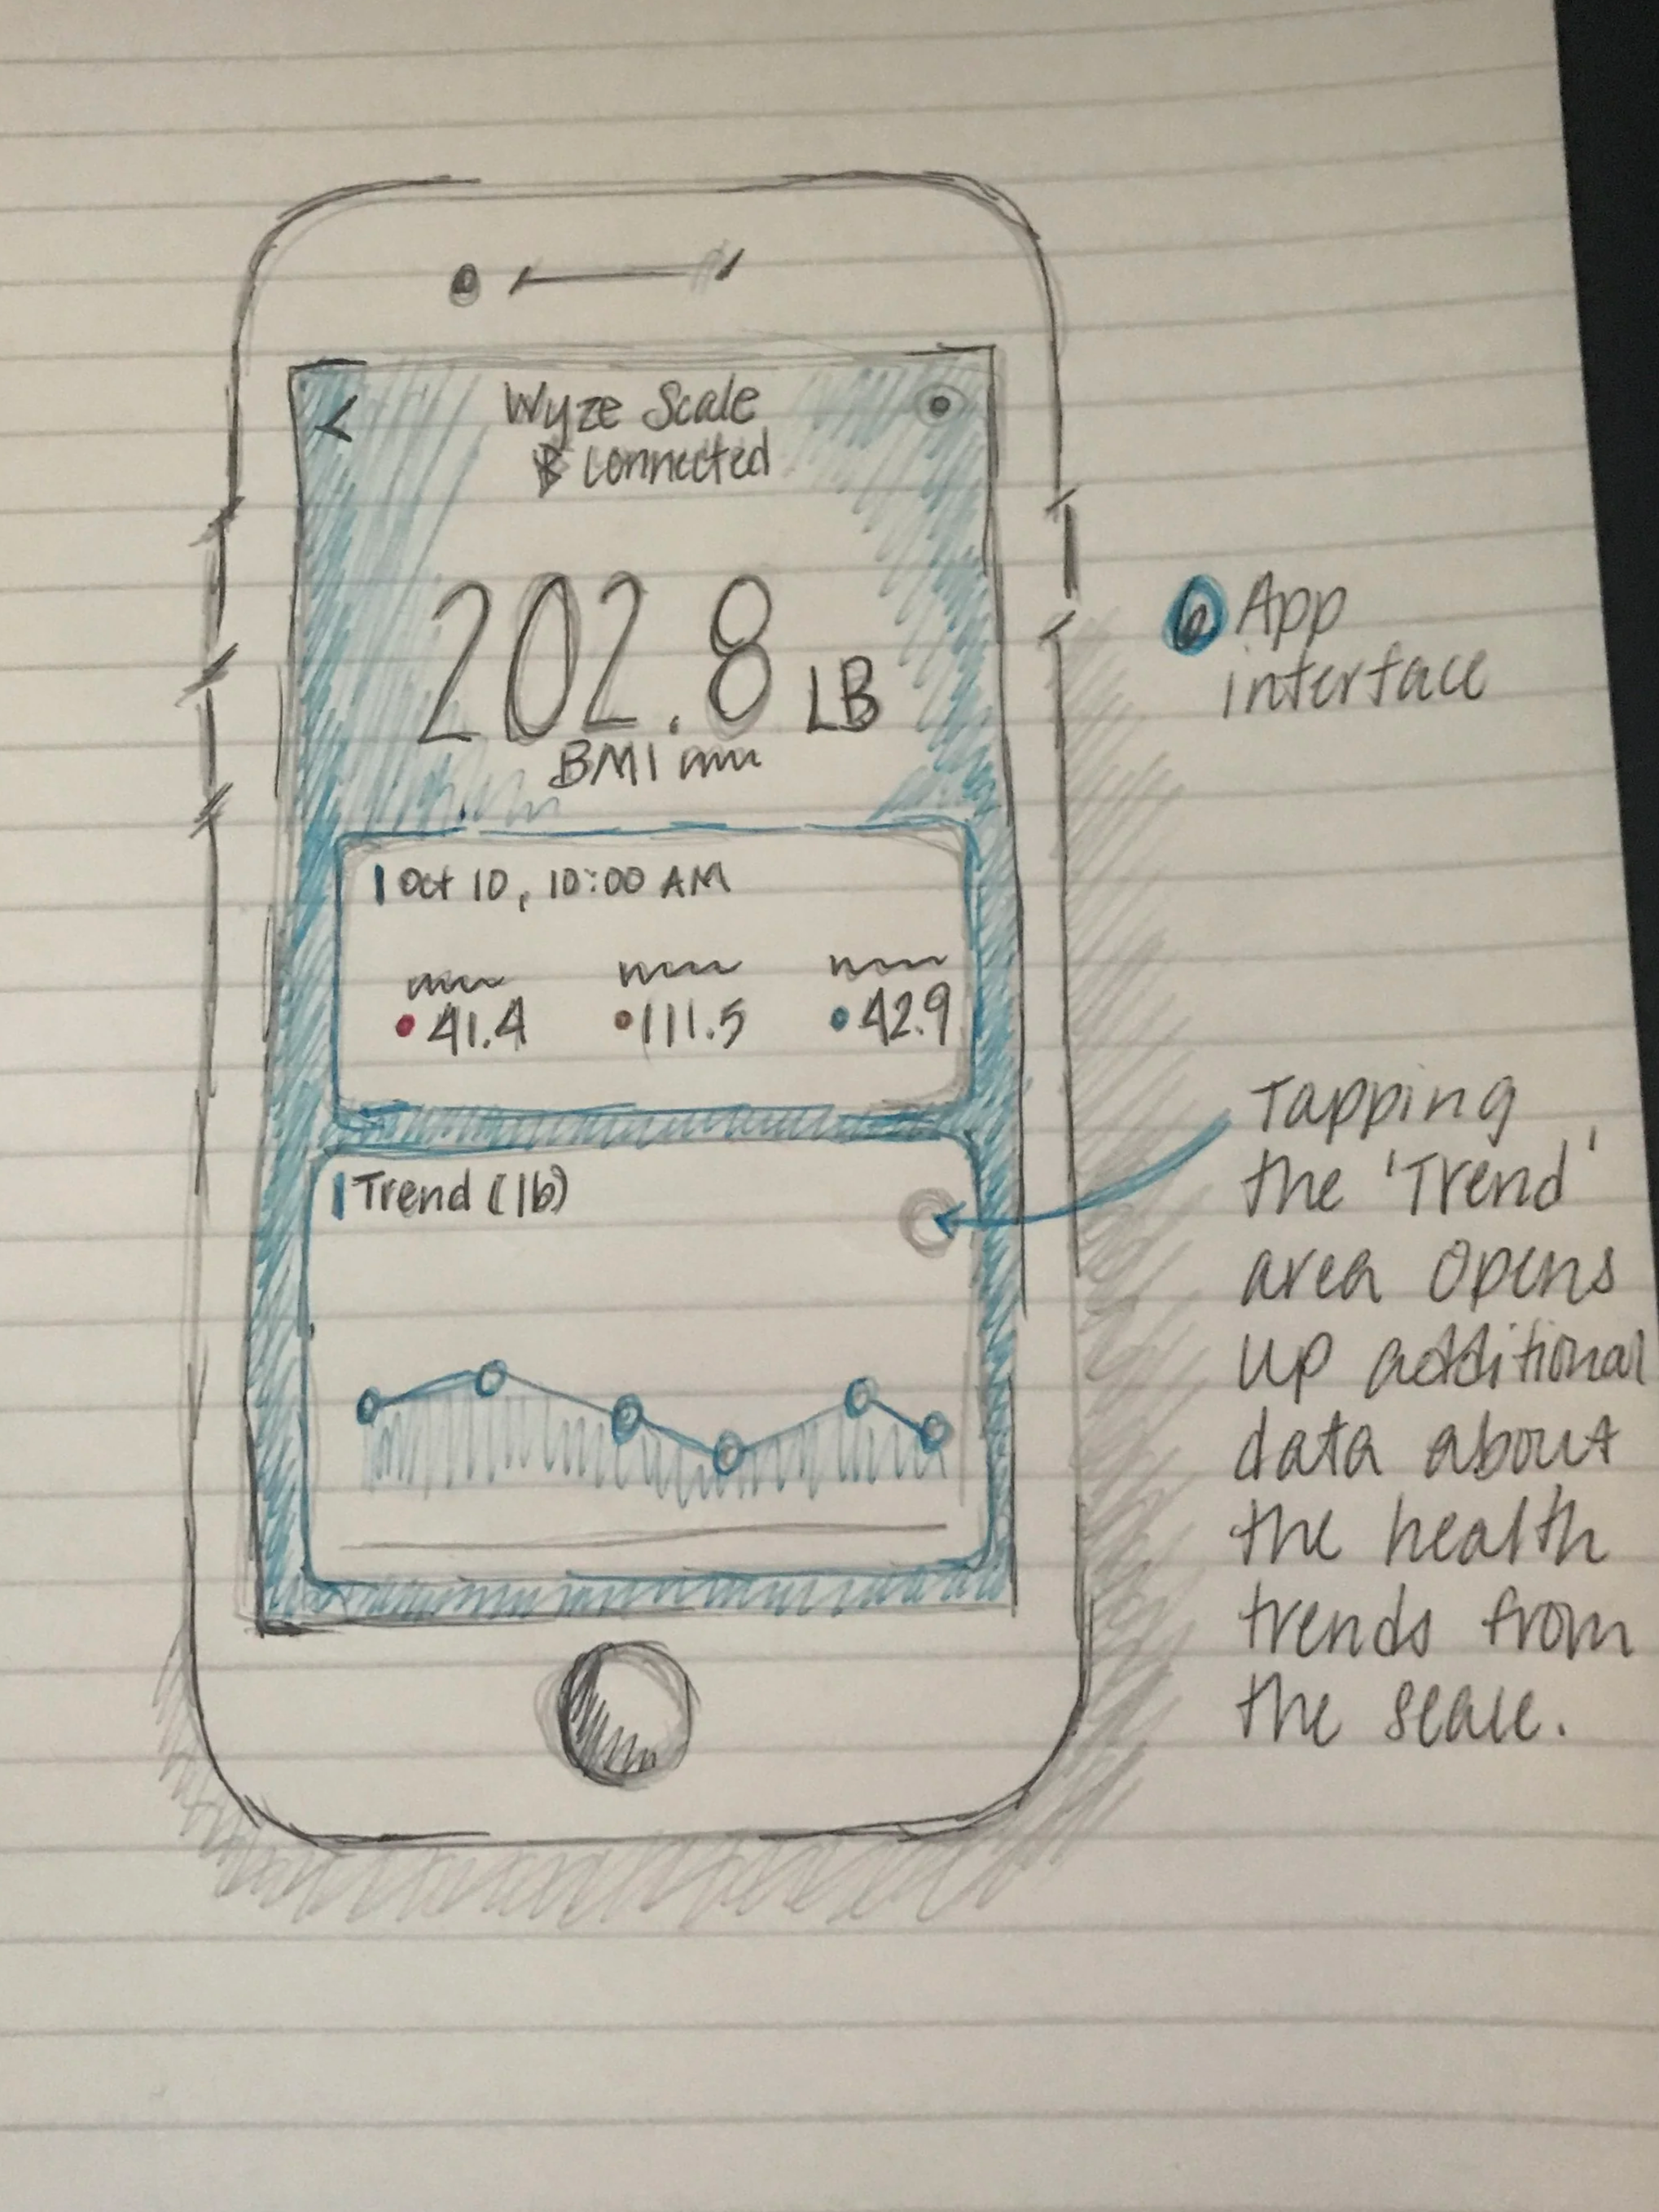 <
Wyze Scale
connected
202.8 LB
BMI
Oct 10, 10:00 AM
41.4 111.5 42.9
Trend (lb)
6 App
interface
Tapping
the 'Trend'
area opens
up additional
data about
the health
trends from
the scale.